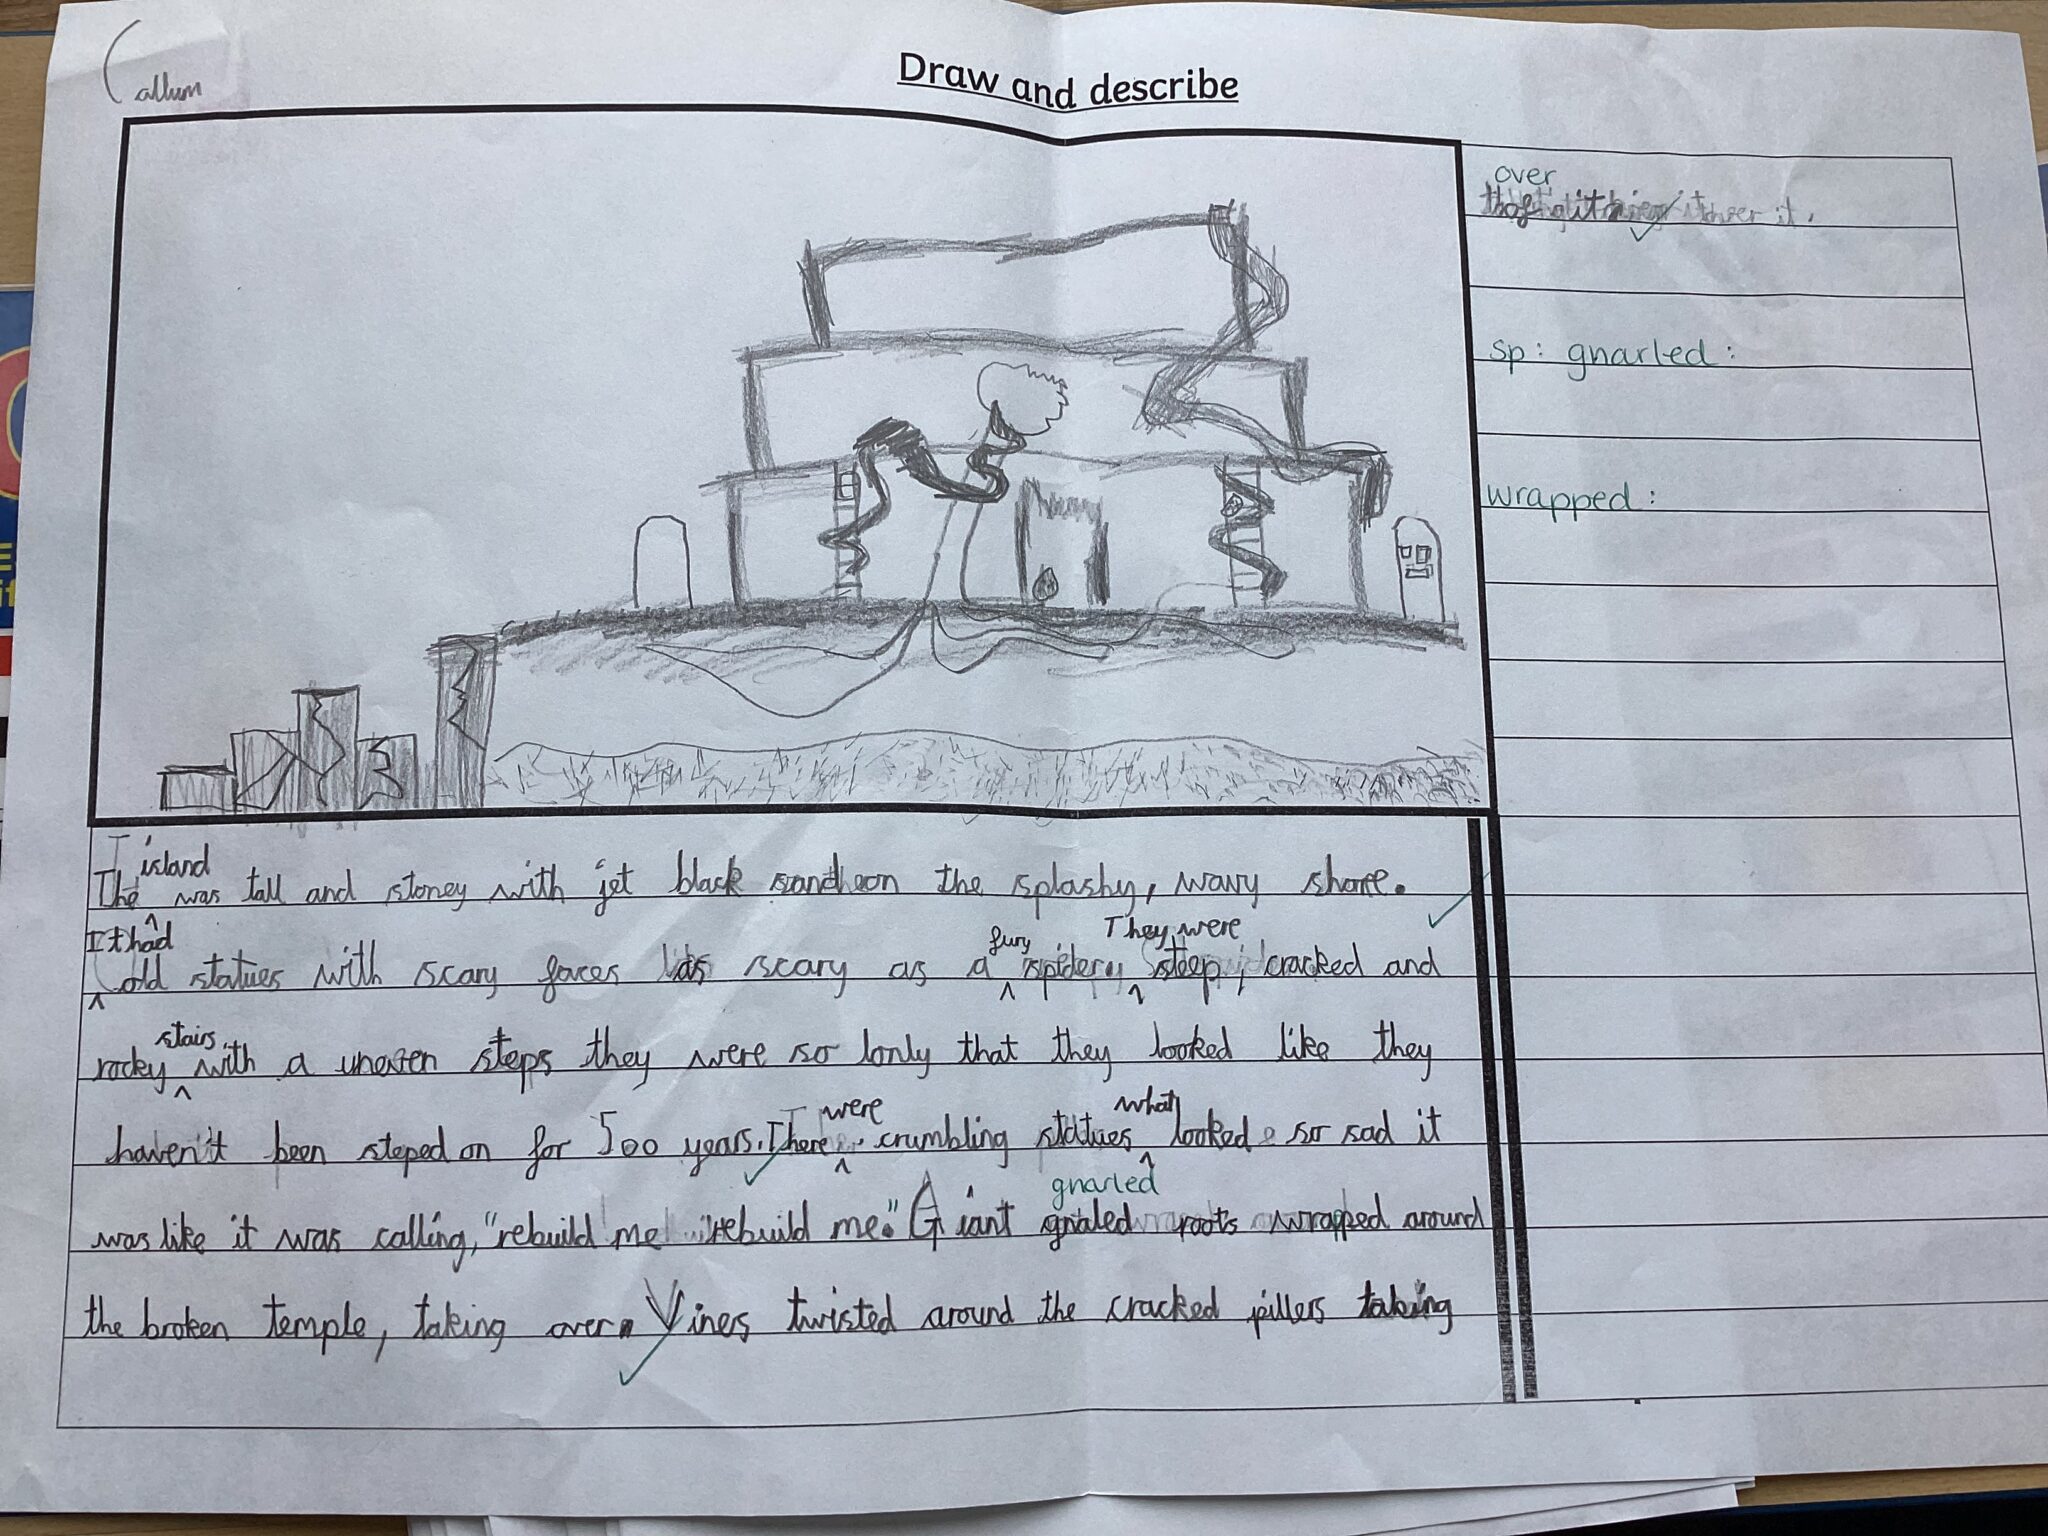 Callum
Draw and describe
over
it.
sp: gnarled:
wrapped:
island
The was tall and stoney with jet black on the splashy, wavy shore.
It had fury They were
old statues with scary faces as scary as a spider, steep, cracked and
stairs
rocky with a uneven steps they were so lonly that they looked like they
were what
haven't been steped on for 500 years. There crumbling statues looked so sad it
gnarled
was like it was calling, "rebuild me rebuild me." Giant gnaled roots wrapped around
the broken temple, taking over. Vines twisted around the cracked pillers taking